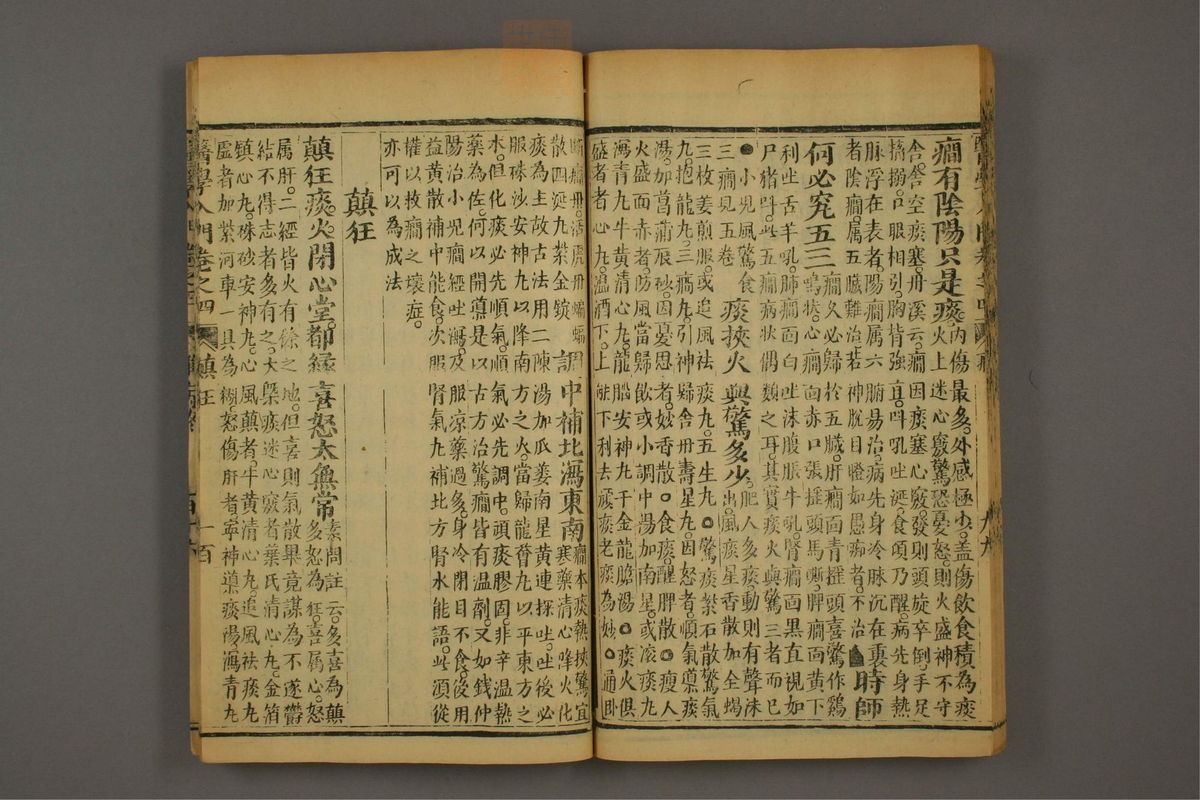 癇有陰陽只是痰
內傷最多。外感極少。盖傷飲食積為痰
火上迷心竅驚恐憂怒。則火盛神不守
舍。荅空痰塞。丹溪云。癇因痰塞心竅。發則頭旋卒倒。手足
搐搦。口眼相引。胸背強直。叫吼吐涎。食頃乃醒。病先身熱
脉浮在表者。陽癇属六腑易治。病先身冷脉沉在裏
者陰癇。属五臟難治。若神脫目瞪如愚痴者。不治
時師
何必究五三
癇久必歸於五臟。肝癇面青搖頭喜驚作鷄
鳴狀。心癇面赤口張搖頭馬嘶。脾癇面黄下
利吐舌羊吼。肺癇面白吐沫腹脹牛吼。腎癇面黑直視如
尸猪叫。此五癇病状偶類之耳。其實痰火與驚三者而已
●小兒風驚食
三癇見五卷
痰挾火與驚多少
肥人多痰動則有聲沫
出。風痰星香散加全蝎
三枚姜煎服。或追風祛痰丸。五生丸。○驚痰紫石散驚氣
丸。抱龍丸。三癇丸。引神歸舍丹壽星丸。因怒者。順氣導痰
湯。加菖蒲辰砂。因憂思者。妙香散。○食痰。醒脾散。○瘦人
火盛面赤者。防風當歸飲或小調中湯加南星。或滚痰丸
瀉青丸牛黄清心丸。龍腦安神丸千金龍膽湯。○痰火俱
盛者 心丸。温酒下。上 下利去頑痰老痰為妙。○通卧
時癇丹。活虎丹蠮螉
散四涎丸紫金錠
調中補北瀉東南
癇本痰熱挾驚宜
寒藥清心降火化
痰為主。故古法用二陳湯加瓜蔞南星黄連探吐。吐後必
服硃沙安神丸以降南方之火。當歸龍薈丸以平東方之
木。但化痰必先順氣。順氣必先調中。頑痰膠固。非辛温熱
藥為佐。何以開導。是以古方治驚癇皆有温劑。又如錢仲
陽治小兒癇經吐瀉。及服凉藥過多。身冷閉目不食。後用
益黄散補中能食。次服腎氣丸補北方腎水能語。此須從
權以救癇之壞症。
亦可以為成法
顛狂
顛狂痰火閉心堂都緣喜怒太無常
素問註云。多喜為顛
多怒為狂。喜属心。怒
属肝。二經皆火有餘之地。但喜則氣散畢竟謀為不遂欝
結不得志者多有之。大槩痰迷心竅者。葉氏清心丸。金箔
鎮心丸。硃砂安神丸。心風顛者。牛黄清心丸。追風祛痰丸
虚者加紫河車一具為糊。怒傷肝者寧神導痰湯。瀉青丸
醫學入門卷之四 顛狂 一百